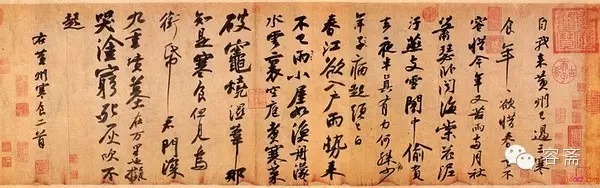 自我来黃州已過三寒
食年々欲惜春々去不
容惜今年又苦雨兩月秋
蕭瑟卧聞海棠花泥
汙燕支雪闇中偷負
去夜半真有力何殊少
年病起頭已白
春江欲入戶雨勢来
不已雨小屋如漁舟濛々
水雲裏空庖煮寒菜
破竈燒濕葦那
知是寒食但見烏
銜帋君門深
九重墳墓在万里也擬
哭塗窮死灰吹不
起
右黃州寒食二首
容斋